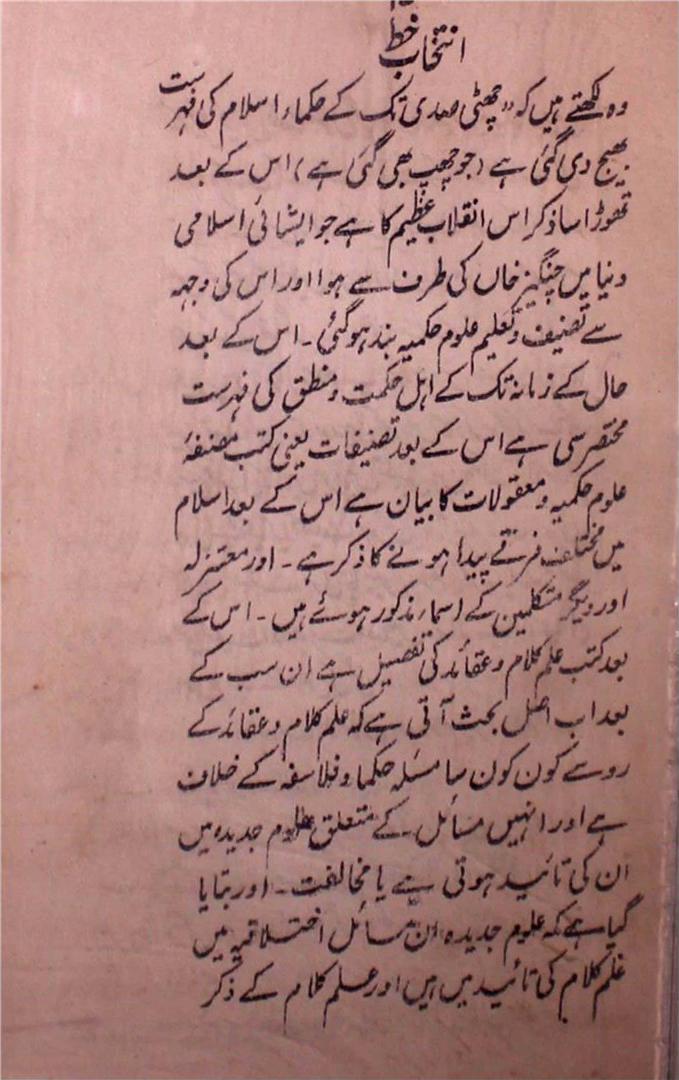 انتخاب خط
وہ لکھتے ہیں کہ "چھٹی صدی تک کے حکماء اسلام کی فہرست
بھیج دی گئی ہے (جو چھپ بھی گئی ہے) اس کے بعد
تھوڑا سا ذکر اس انقلاب عظیم کا ہے جو ایشائی اسلامی
دنیا میں چنگیز خاں کی طرف سے ہوا اور اس کی وجہہ
سے تصنیف و تعلیم علوم حکمیہ بند ہو گئی۔ اس کے بعد
حال کے زمانہ تک کے اہل حکمت و منطق کی فہرست
مختصر سی ہے اس کے بعد تصنیفات یعنی کتب مصنفۂ
علوم حکمیہ و معقولات کا بیان ہے اس کے بعد اسلام
میں مختلف فرقے پیدا ہونے کا ذکر ہے۔ اور معتزلہ
اور دیگر متکلمین کے اسماء مذکور ہوئے ہیں۔ اس کے
بعد کتب علم کلام و عقائد کی تفصیل ہے ان سب کے
بعد اب اصل بحث آتی ہے کہ علم کلام و عقائد کے
رو سے کون کون سا مسئلہ حکما و فلاسفہ کے خلاف
ہے اور انہیں مسائل کے متعلق علوم جدیدہ میں
ان کی تائید ہوتی ہے یا مخالفت۔ اور بتایا
گیا ہے کہ علوم جدیدہ ان مسائل اختلاقیہ میں
علم کلام کی تائید میں ہیں اور علم کلام کے ذکر